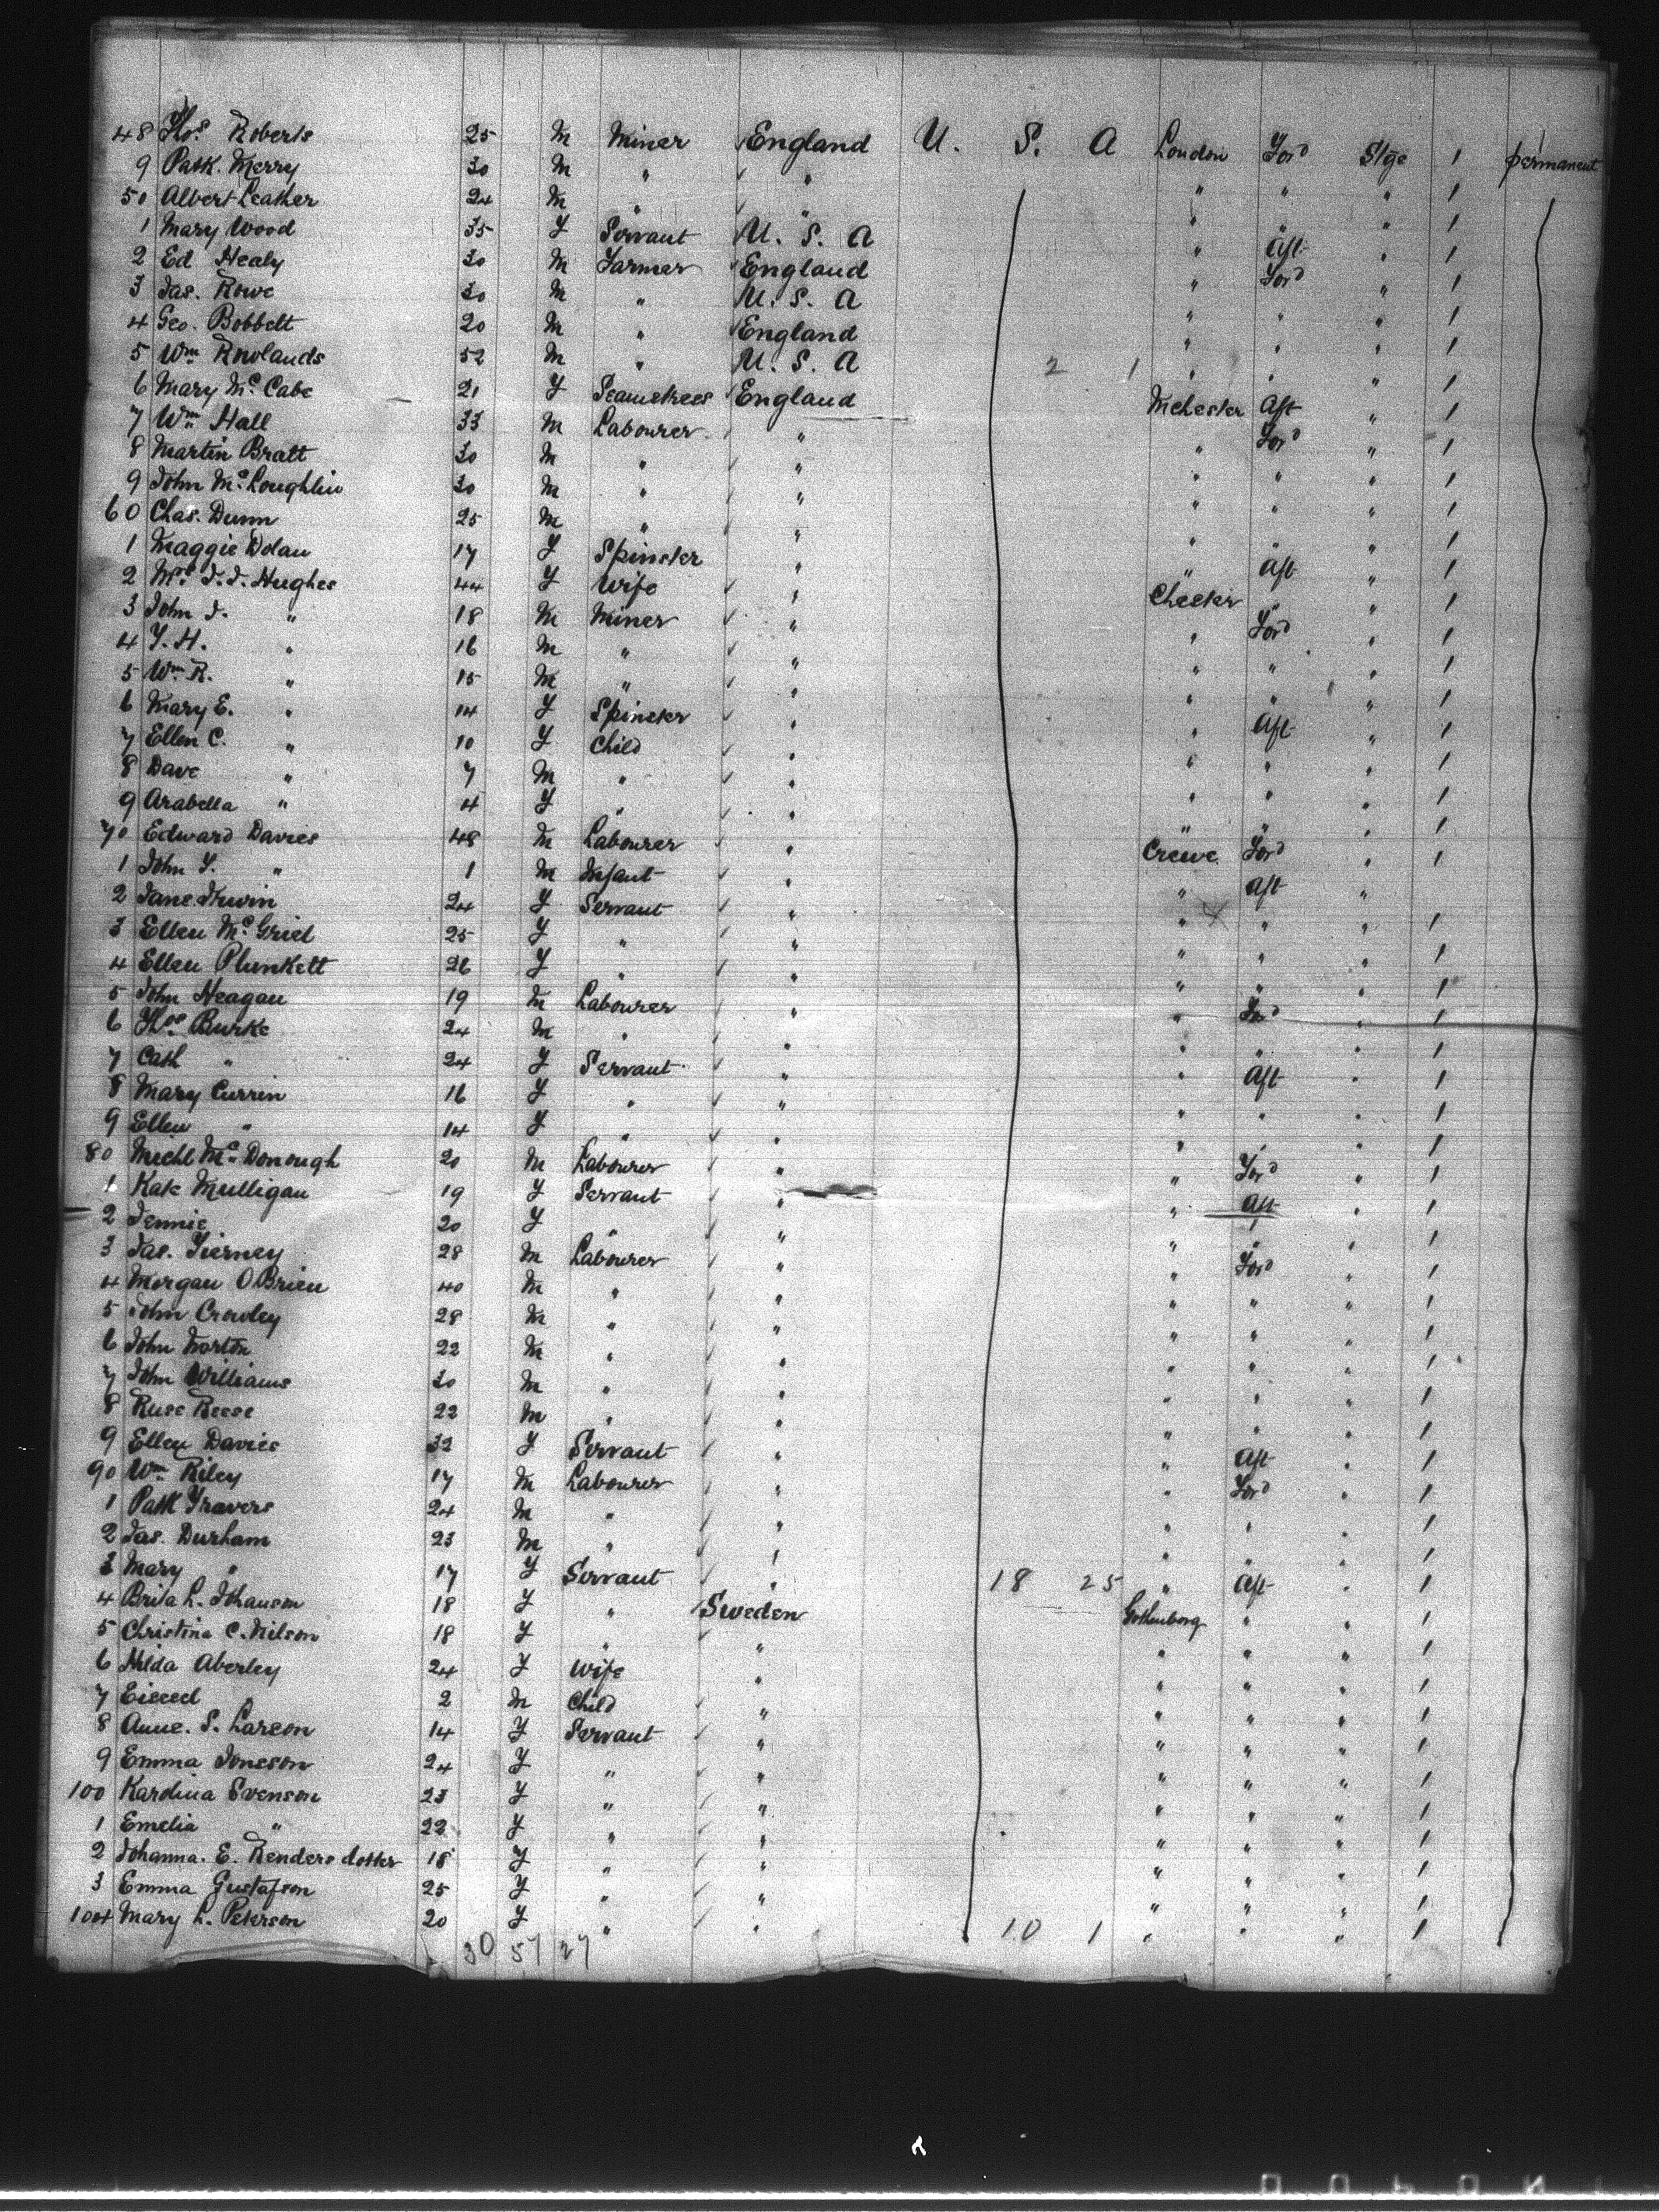 48 Thos Roberts 25 M Miner England U. S. A London Ford Stge 1 permanent
9 Patk. Merry 30 M " " " " " 1
50 Albert Leather 24 M " " " " " 1
1 Mary Wood 35 F Servant U. S. A " Aft " 1
2 Ed Healy 30 M Farmer England " Ford " 1
3 Jas. Rowe 30 M " U. S. A " " " 1
4 Geo. Bobbett 20 M " England " " " 1
5 Wm Rowlands 52 M " U. S. A 2 1 " " " 1
6 Mary Mc Cabe 21 F Seamstress England Mchester Aft " 1
7 Wm Hall 33 M Labourer " " Ford " 1
8 Martin Bratt 30 M " " " " " 1
9 John Mc Loughlin 30 M " " " " " 1
60 Chas. Dunn 25 M " " " " " 1
1 Maggie Dolan 17 F Spinster " " Aft " 1
2 Mrs J. J. Hughes 44 F Wife " Chester " " 1
3 John J. " 18 M Miner " " Ford " 1
4 T. H. " 16 M " " " " " 1
5 Wm R. " 15 M " " " " " 1
6 Mary E. " 14 F Spinster " " Aft " 1
7 Ellen C. " 10 F Child " " " " 1
8 Dave " 7 M " " " " " 1
9 Arabella " 4 F " " " " " 1
70 Edward Davies 48 M Labourer " Crewe Ford " 1
1 John T. " 1 M Infant " " Aft "
2 Jane Irwin 24 F Servant " " " " 1
3 Ellen Mc Griel 25 F " " " " " 1
4 Ellen Plunkett 26 F " " " " " 1
5 John Heagan 19 M Labourer " " Ford " 1
6 Thos Burke 24 M " " " " " 1
7 Cath " 24 F Servant " " Aft " 1
8 Mary Currin 16 F " " " " " 1
9 Ellen " 14 F " " " " " 1
80 Michl Mc Donough 20 M Labourer " " Ford " 1
1 Kate Mulligan 19 F Servant " " Aft " 1
2 Jennie " 20 F " " " " " 1
3 Jas. Tierney 28 M Labourer " " Ford " 1
4 Morgan O Brien 40 M " " " " " 1
5 John Crowley 28 M " " " " " 1
6 John Norton 22 M " " " " " 1
7 John Williams 30 M " " " " " 1
8 Ruse Reese 22 M " " " " " 1
9 Ellen Davies 32 F Servant " " Aft " 1
90 Wm Riley 17 M Labourer " " Ford " 1
1 Patk Travers 24 M " " " " " 1
2 Jas. Durham 23 M " " " " " 1
3 Mary " 17 F Servant " 18 25 " Aft " 1
4 Brita L. Johanson 18 F " Sweden Gothenborg " " 1
5 Christina C. Nilson 18 F " " " " " 1
6 Hilda Aberley 24 F Wife " " " " 1
7 " 2 M Child " " " " 1
8 Anne. S. Larson 14 F Servant " " " " 1
9 Emma Jonsson 24 F " " " " " 1
100 Kardina Svenson 23 F " " " " " 1
1 Emelia " 22 F " " " " " 1
2 Johanna. E. Renders dotter 18 F " " " " " 1
3 Emma Gustafson 25 F " " " " " 1
104 Mary L. Peterson 20 F " " 10 1 " " " 1
30 57 27